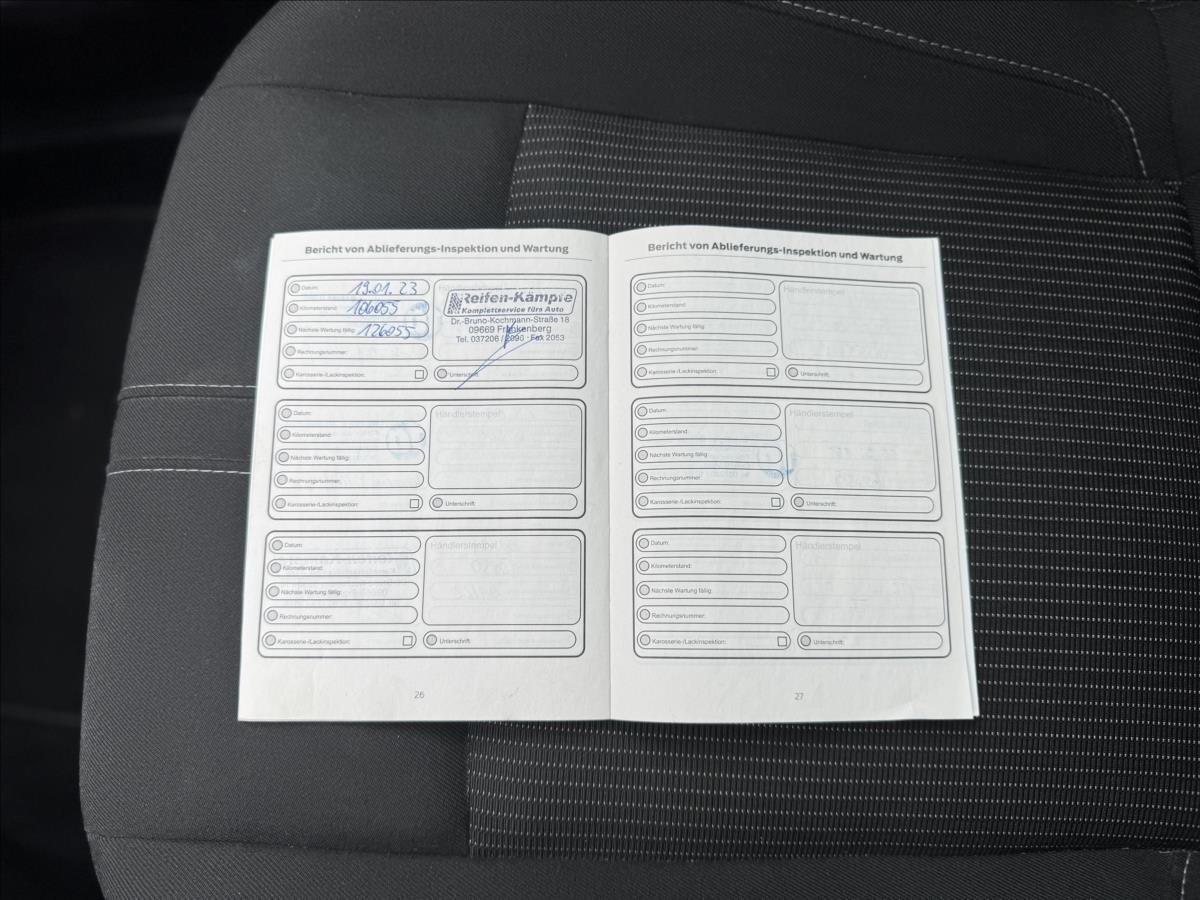 Bericht von Ablieferungs-Inspektion und Wartung
Datum: 19.01.23
Kilometerstand: 106055
Nächste Wartung fällig: 126055
Rechnungsnummer:
Karosserie-/Lackinspektion:
Reifen-Kämpfe
Komplettservice fürs Auto
Dr.-Bruno-Kochmann-Straße 18
09669 Frankenberg
Tel. 037206 / 2090 · Fax 2053
Unterschrift:
Datum:
Kilometerstand:
Nächste Wartung fällig:
Rechnungsnummer:
Karosserie-/Lackinspektion:
Händlerstempel
Unterschrift:
Datum:
Kilometerstand:
Nächste Wartung fällig:
Rechnungsnummer:
Karosserie-/Lackinspektion:
Händlerstempel
Unterschrift:
26
Bericht von Ablieferungs-Inspektion und Wartung
Datum:
Kilometerstand:
Nächste Wartung fällig:
Rechnungsnummer:
Karosserie-/Lackinspektion:
Händlerstempel
Unterschrift:
Datum:
Kilometerstand:
Nächste Wartung fällig:
Rechnungsnummer:
Karosserie-/Lackinspektion:
Händlerstempel
Unterschrift:
Datum:
Kilometerstand:
Nächste Wartung fällig:
Rechnungsnummer:
Karosserie-/Lackinspektion:
Händlerstempel
Unterschrift:
27